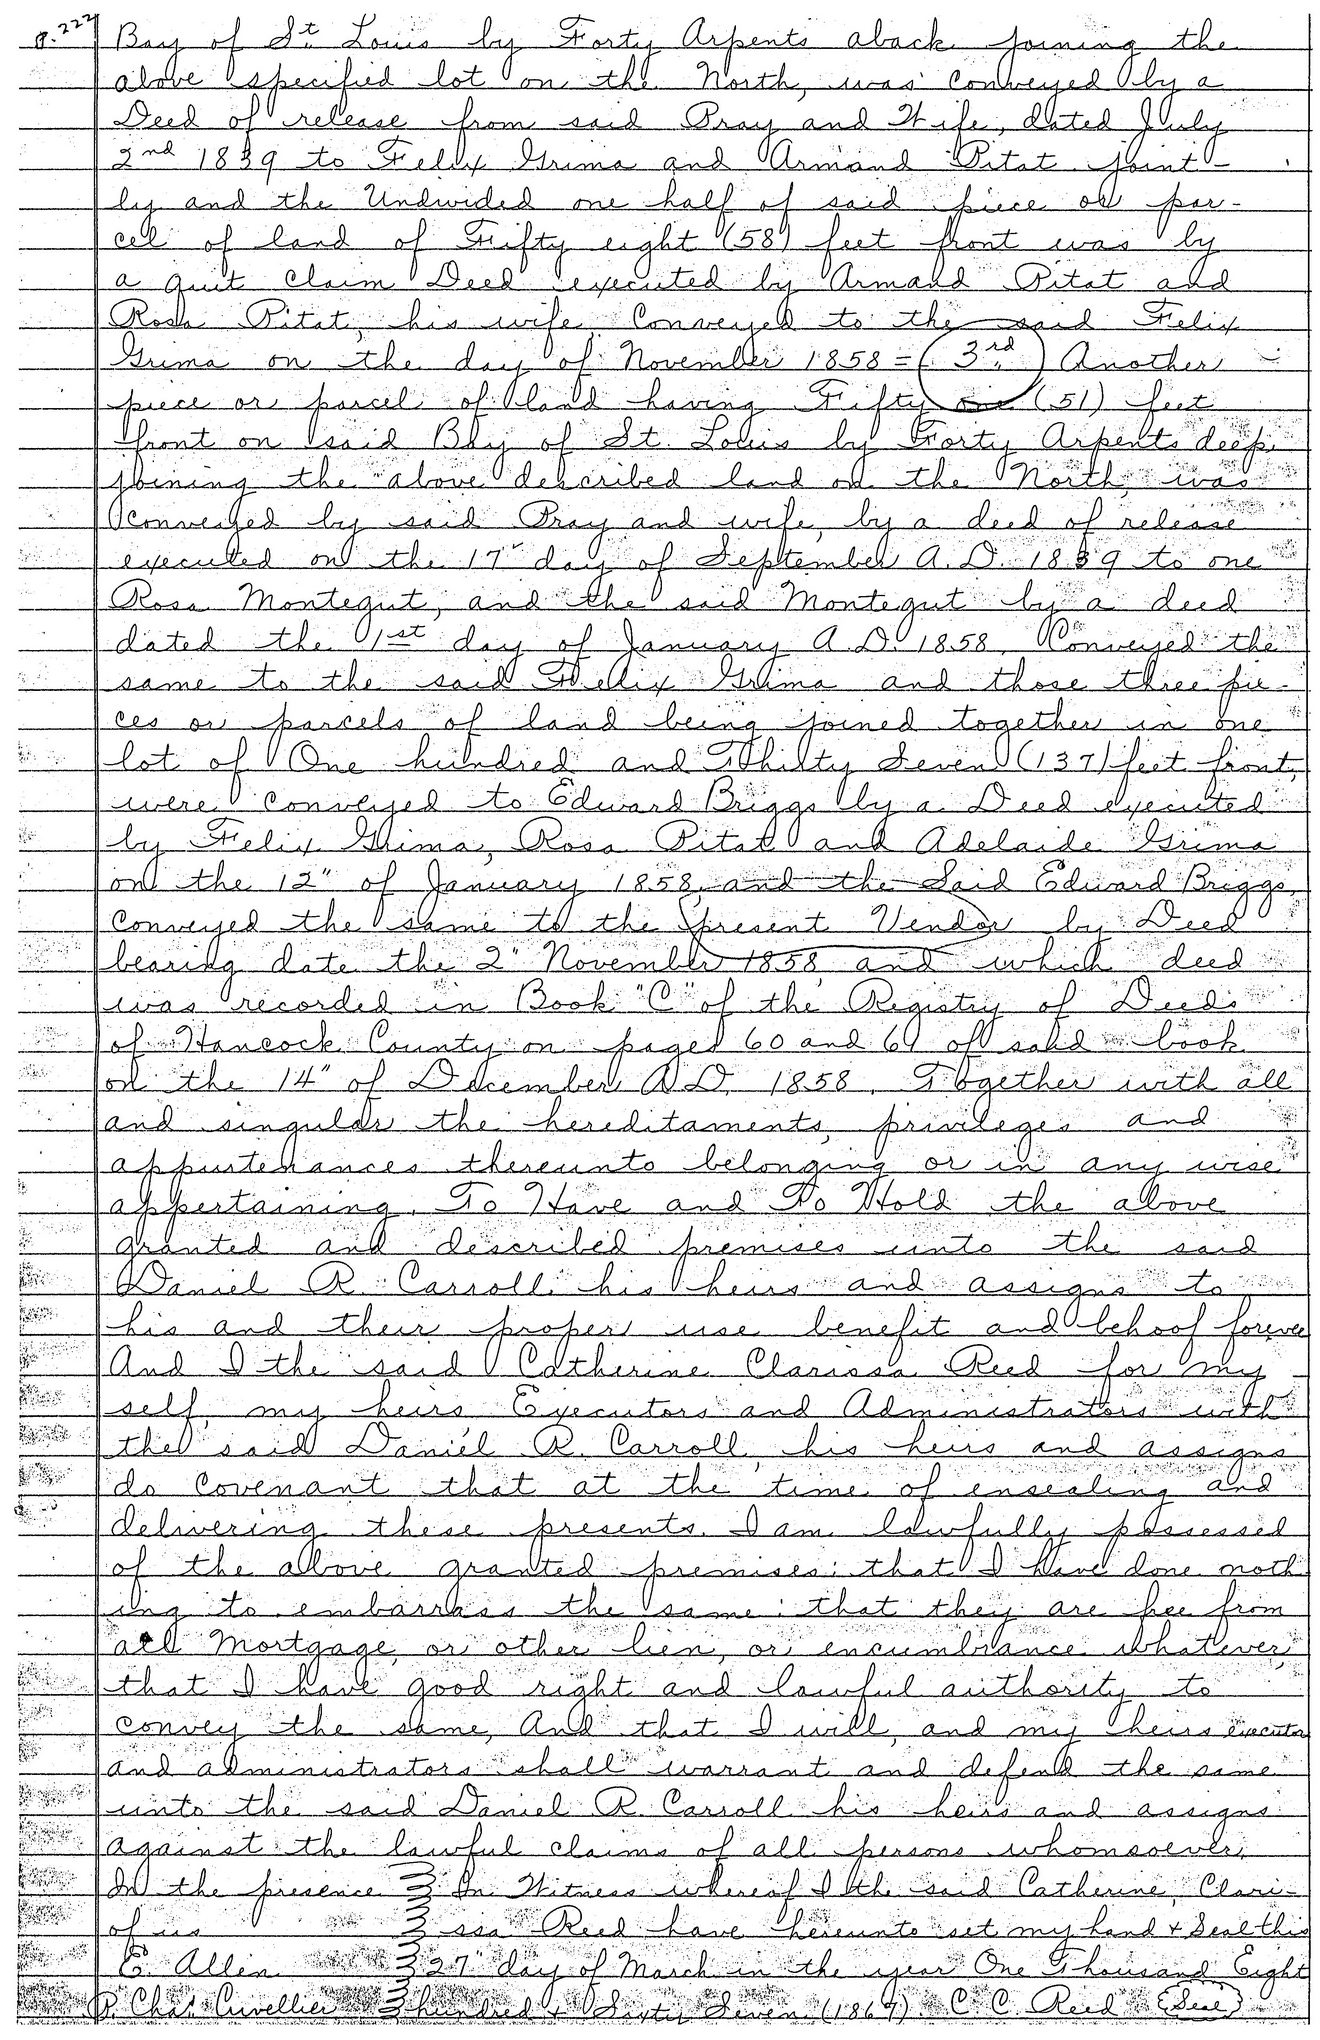 p.222
Bay of St. Louis by Forty Arpents aback joining the
above specified lot on the North, was conveyed by a
Deed of release from said Pray and Wife, dated July
2nd 1839 to Felix Grima and Armand Pitat joint-
ly and the Undivided one half of said piece or par-
cel of land of Fifty eight (58) feet front was by
a quit claim Deed executed by Armand Pitat and
Rosa Pitat, his wife, Conveyed to the said Felix
Grima on the day of November 1858 = (3rd.) Another
piece or parcel of land having Fifty one (51) feet
front on said Bay of St. Louis by Forty Arpents deep,
joining the above described land on the North, was
conveyed by said Pray and wife, by a deed of release
executed on the 17" day of September A.D. 1839 to one
Rosa Montegut, and the said Montegut by a deed
dated the 1st day of January A.D. 1858, Conveyed the
same to the said Felix Grima and those three pie-
ces or parcels of land being joined together in one
lot of One hundred and Thirty Seven (137) feet front,
were conveyed to Edward Briggs by a Deed executed
by Felix Grima, Rosa Pitat and Adelaide Grima
on the 12" of January 1858, and the Said Edward Briggs,
conveyed the same to the present Vendor by Deed
bearing date the 2" November 1858 and which deed
was recorded in Book "C" of the Registry of Deeds
of Hancock County on pages 60 and 61 of said book
on the 14" of December A.D. 1858. Together with all
and singular the hereditaments, privileges and
appurtenances thereunto belonging or in any wise
appertaining. To Have and To Hold the above
granted and described premises unto the said
Daniel R. Carroll his heirs and assigns to
his and their proper use benefit and behoof forever
And I the said Catherine Clarissa Reed for my
self, my heirs Executors and Administrators with
the said Daniel R. Carroll, his heirs and assigns
do covenant that at the time of ensealing and
delivering these presents. I am lawfully possessed
of the above granted premises: that I have done noth
ing to embarrass the same: that they are free from
all Mortgage, or other lien, or encumbrance whatever,
that I have good right and lawful authority to
convey the same, And that I will, and my heirs executors
and administrators shall warrant and defend the same
unto the said Daniel R Carroll his heirs and assigns
against the lawful claims of all persons whomsoever,
In the presence In Witness whereof I the said Catherine, Clari-
of us ssa Reed have hereunto set my hand + Seal this
E. Allen 27" day of March in the year One Thousand Eight
R. Chas. Cuvellier hundred + Sixty Seven (1867) C. C. Reed (Seal)